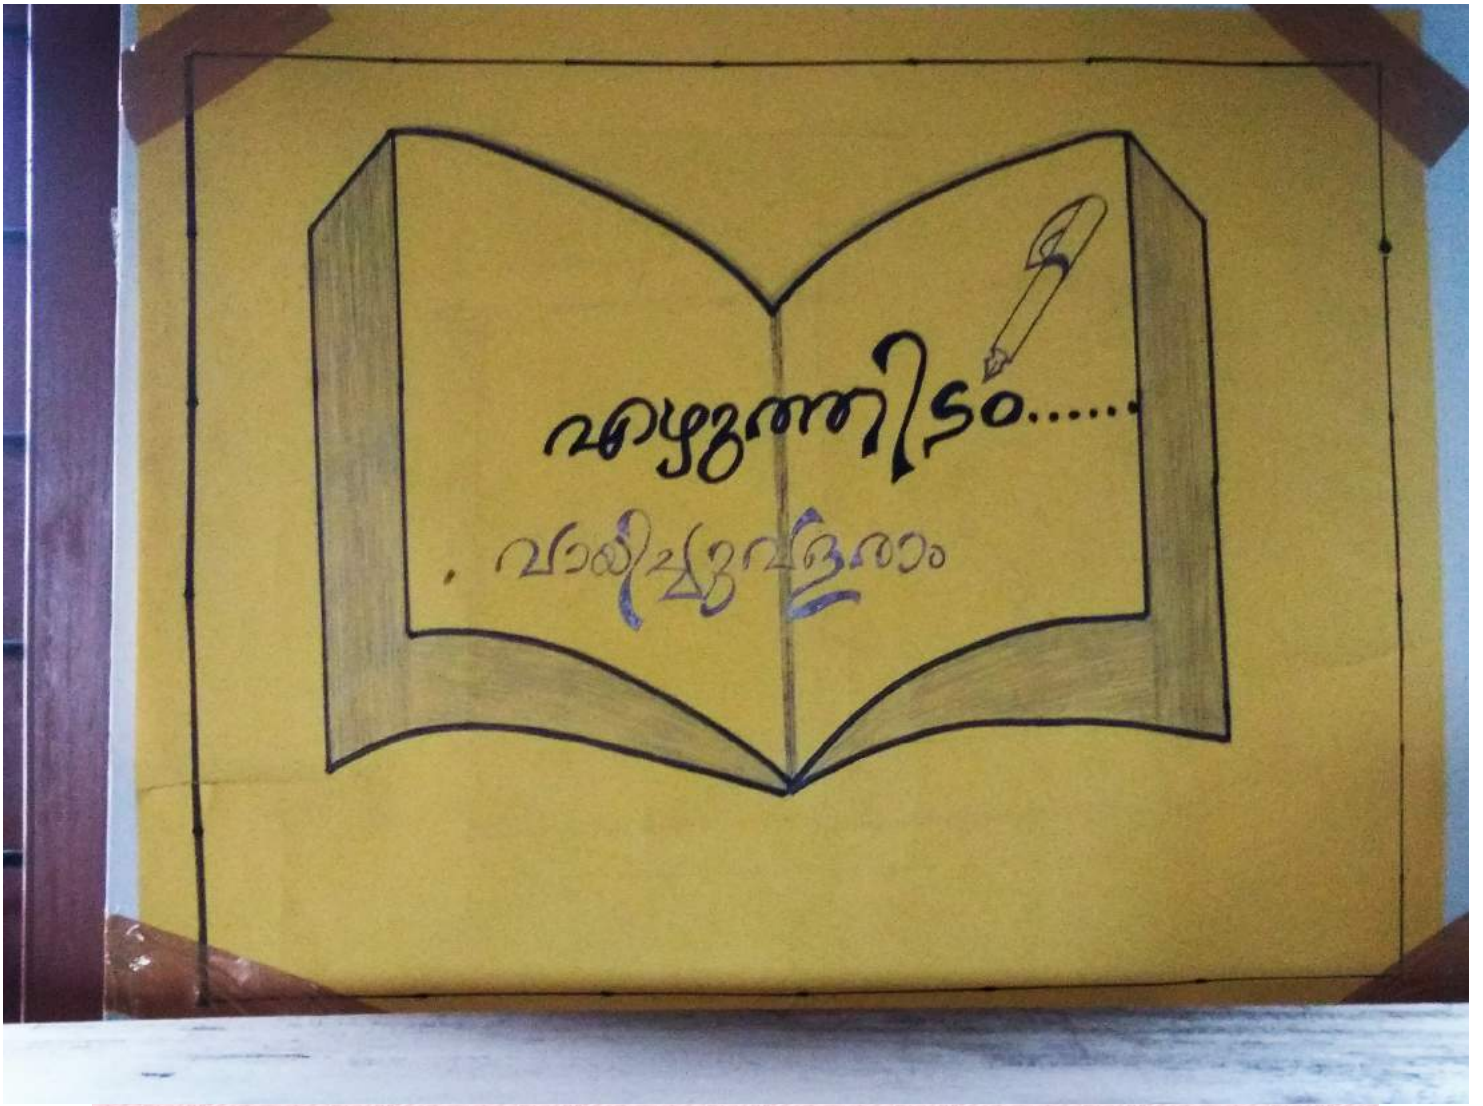 എഴുത്തിടം......
വായിച്ചുവളരാം